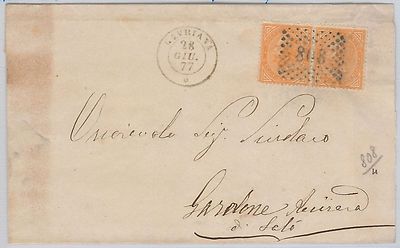 CAVRIANA
28
GIU.
77
808
Onorevole Sig. Sindaco
808
Gardone Riviera
di Salò